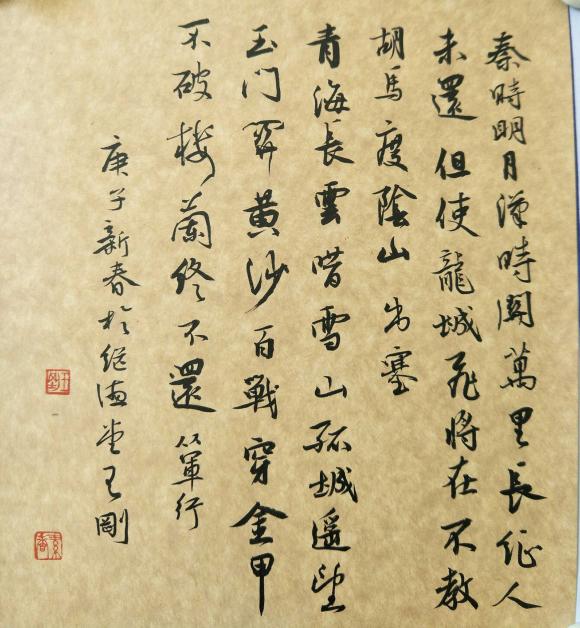 秦時明月漢時關萬里長征人
未還但使龍城飛將在不教
胡馬度陰山 出塞
青海長雲暗雪山孤城遥望
玉门関黄沙百戰穿金甲
不破楼蘭终不還 从軍行
庚子新春於堂王剛